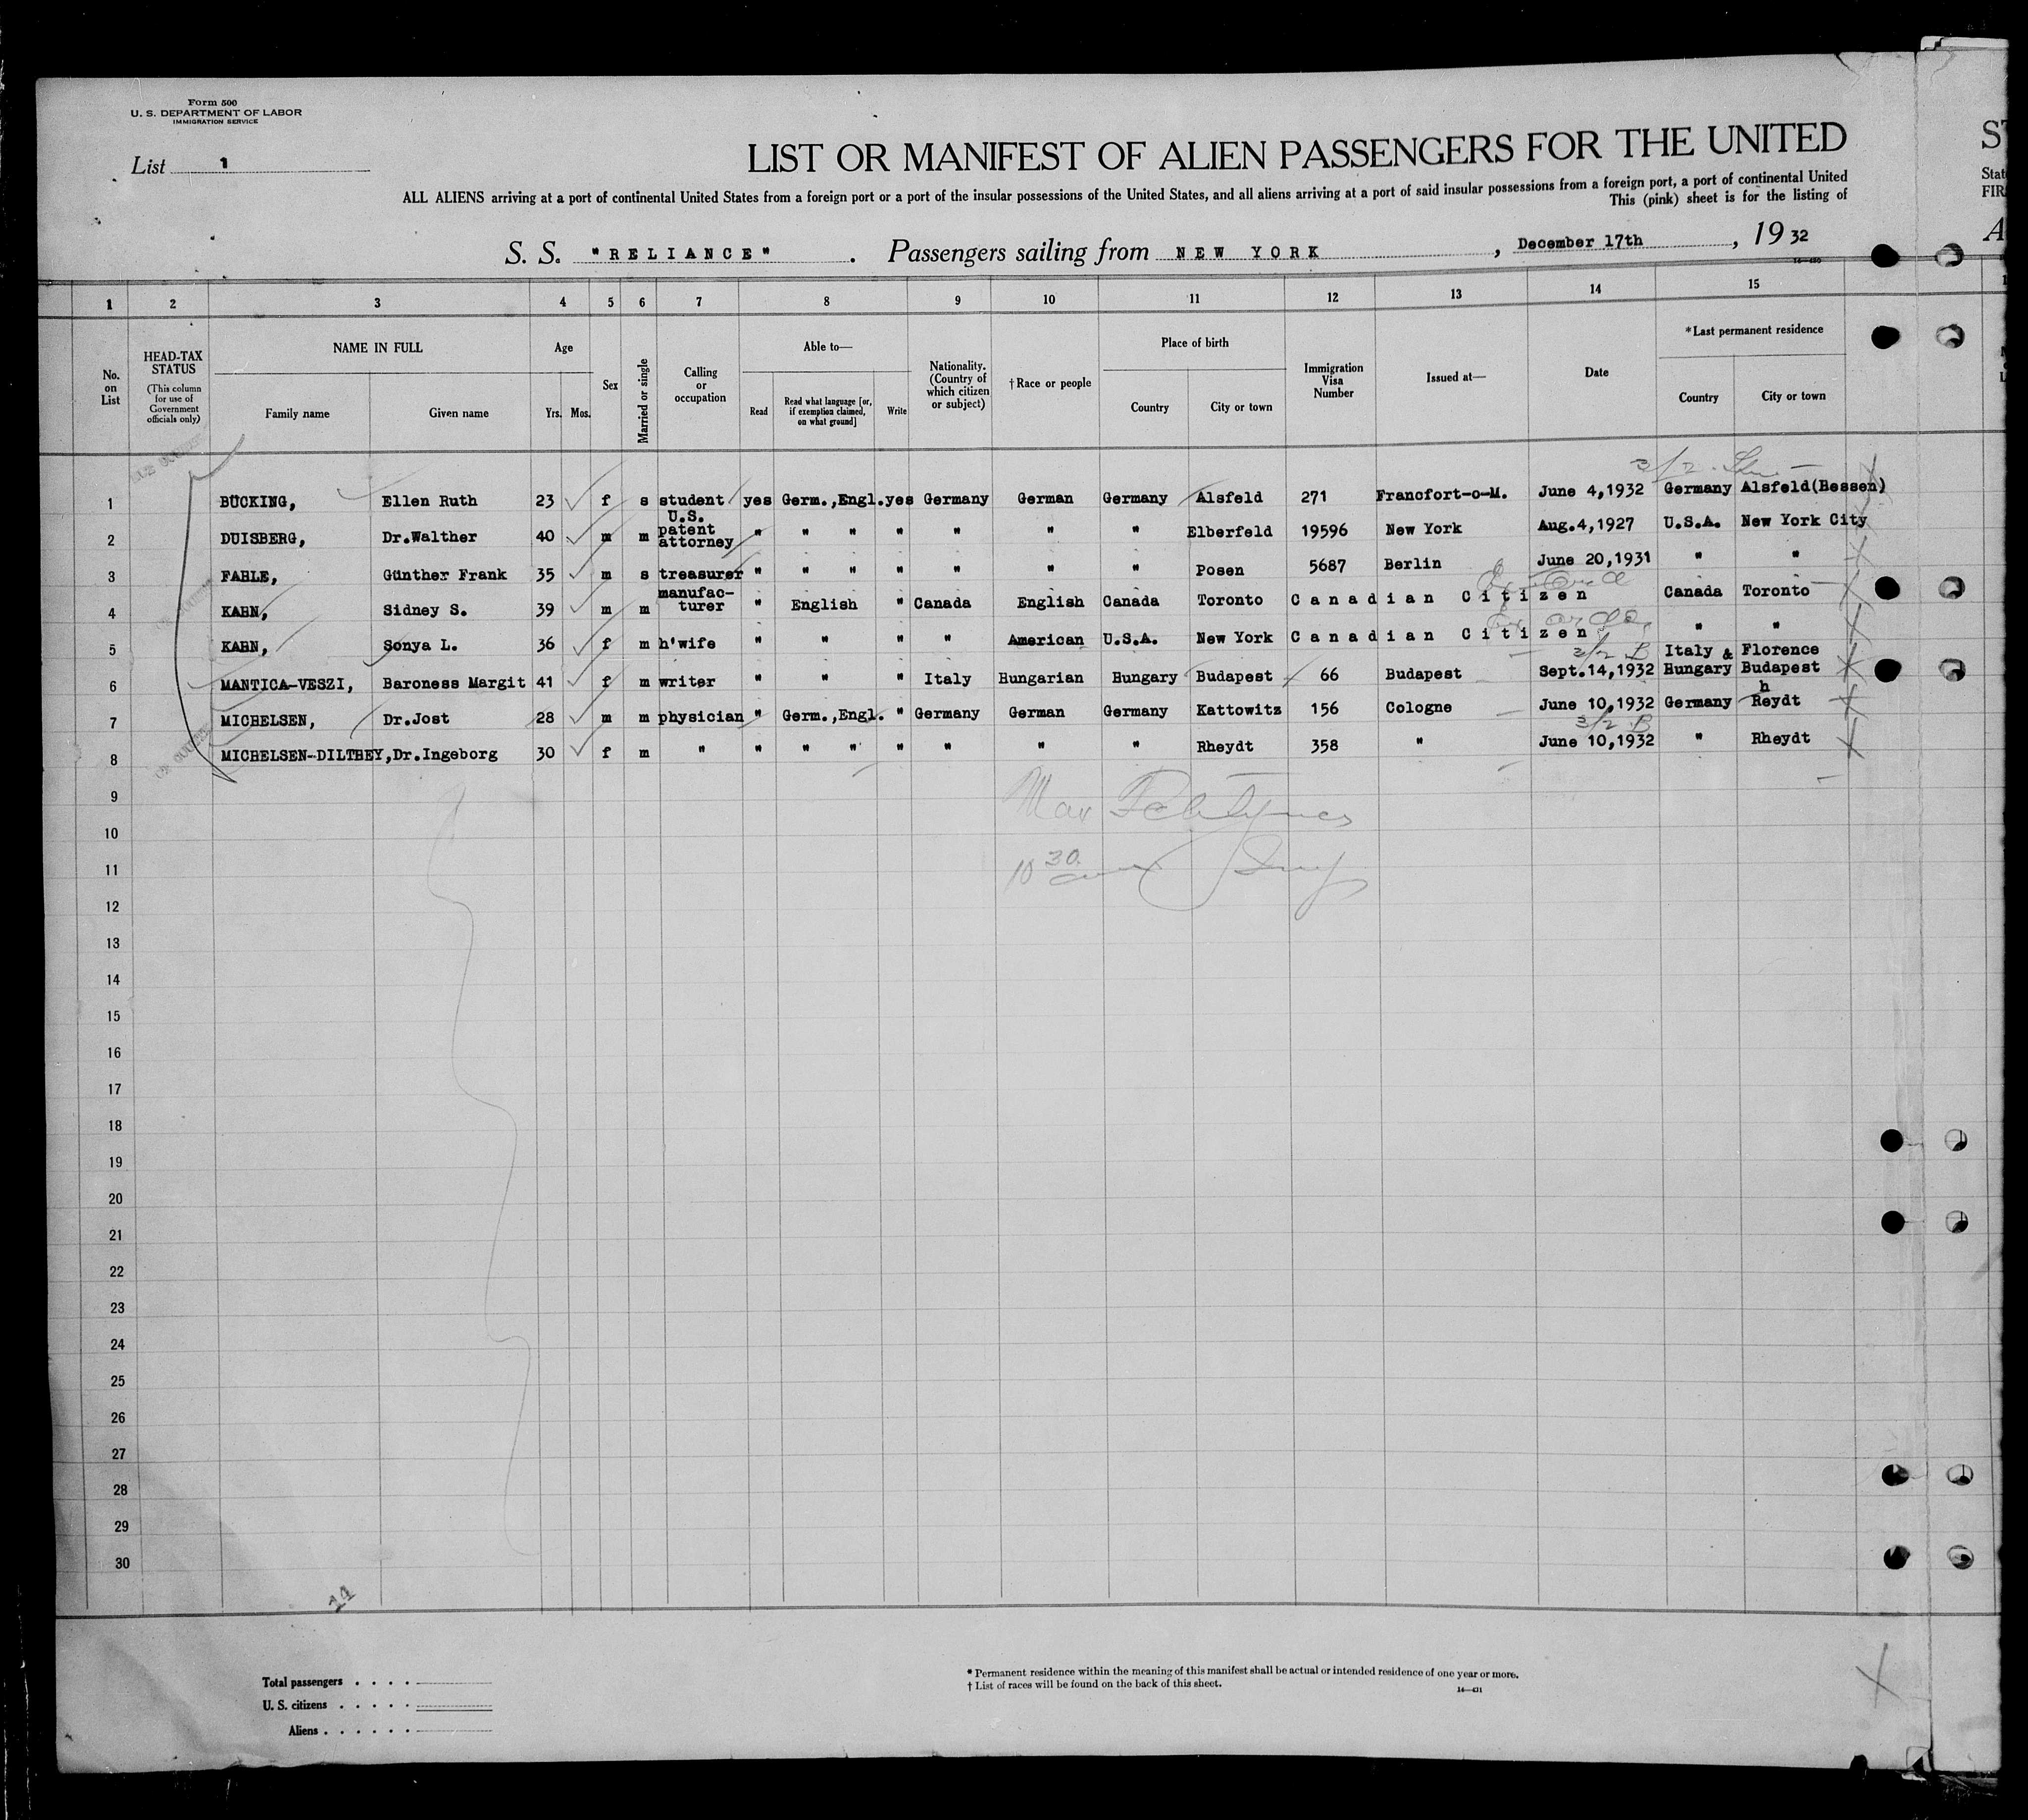 Form 500
U. S. DEPARTMENT OF LABOR
IMMIGRATION SERVICE
List 1
LIST OR MANIFEST OF ALIEN PASSENGERS FOR THE UNITED
ALL ALIENS arriving at a port of continental United States from a foreign port or a port of the insular possessions of the United States, and all aliens arriving at a port of said insular possessions from a foreign port, a port of continental United
This (pink) sheet is for the listing of
S. S. "RELIANCE" . Passengers sailing from NEW YORK , December 17th , 1932
1 2 3 4 5 6 7 8 9 10 11 12 13 14 15
No. on List
HEAD-TAX STATUS (This column for use of Government officials only)
NAME IN FULL Family name Given name
Age Yrs. Mos.
Sex
Married or single
Calling or occupation
Able to— Read Read what language [or, if exemption claimed, on what ground] Write
Nationality. (Country of which citizen or subject)
† Race or people
Place of birth Country City or town
Immigration Visa Number
Issued at—
Date
*Last permanent residence Country City or town
1 BÜCKING, Ellen Ruth 23 f s student yes Germ.,Engl. yes Germany German Germany Alsfeld 271 Francfort-o-M. June 4,1932 Germany Alsfeld(Hessen)
2 DUISBERG, Dr.Walther 40 m m U.S. patent attorney " " " " " " " Elberfeld 19596 New York Aug.4,1927 U.S.A. New York City
3 FAHLE, Günther Frank 35 m s treasurer " " " " " " " Posen 5687 Berlin June 20,1931 " "
4 KAHN, Sidney S. 39 m m manufac-turer " English " Canada English Canada Toronto Canadian Citizen Canada Toronto
5 KAHN, Sonya L. 36 f m h'wife " " " " American U.S.A. New York Canadian Citizen " "
6 MANTICA-VESZI, Baroness Margit 41 f m writer " " " Italy Hungarian Hungary Budapest 66 Budapest Sept.14,1932 Italy & Hungary Florence Budapest
7 MICHELSEN, Dr.Jost 28 m m physician " Germ.,Engl. " Germany German Germany Kattowitz 156 Cologne June 10,1932 Germany Rheydt
8 MICHELSEN-DILTHEY,Dr.Ingeborg 30 f m " " " " " " " " Rheydt 358 " June 10,1932 " Rheydt
9
10
11
12
13
14
15
16
17
18
19
20
21
22
23
24
25
26
27
28
29
30
14
Total passengers . . . .
U. S. citizens . . . . .
Aliens . . . . . .
* Permanent residence within the meaning of this manifest shall be actual or intended residence of one year or more.
† List of races will be found on the back of this sheet.